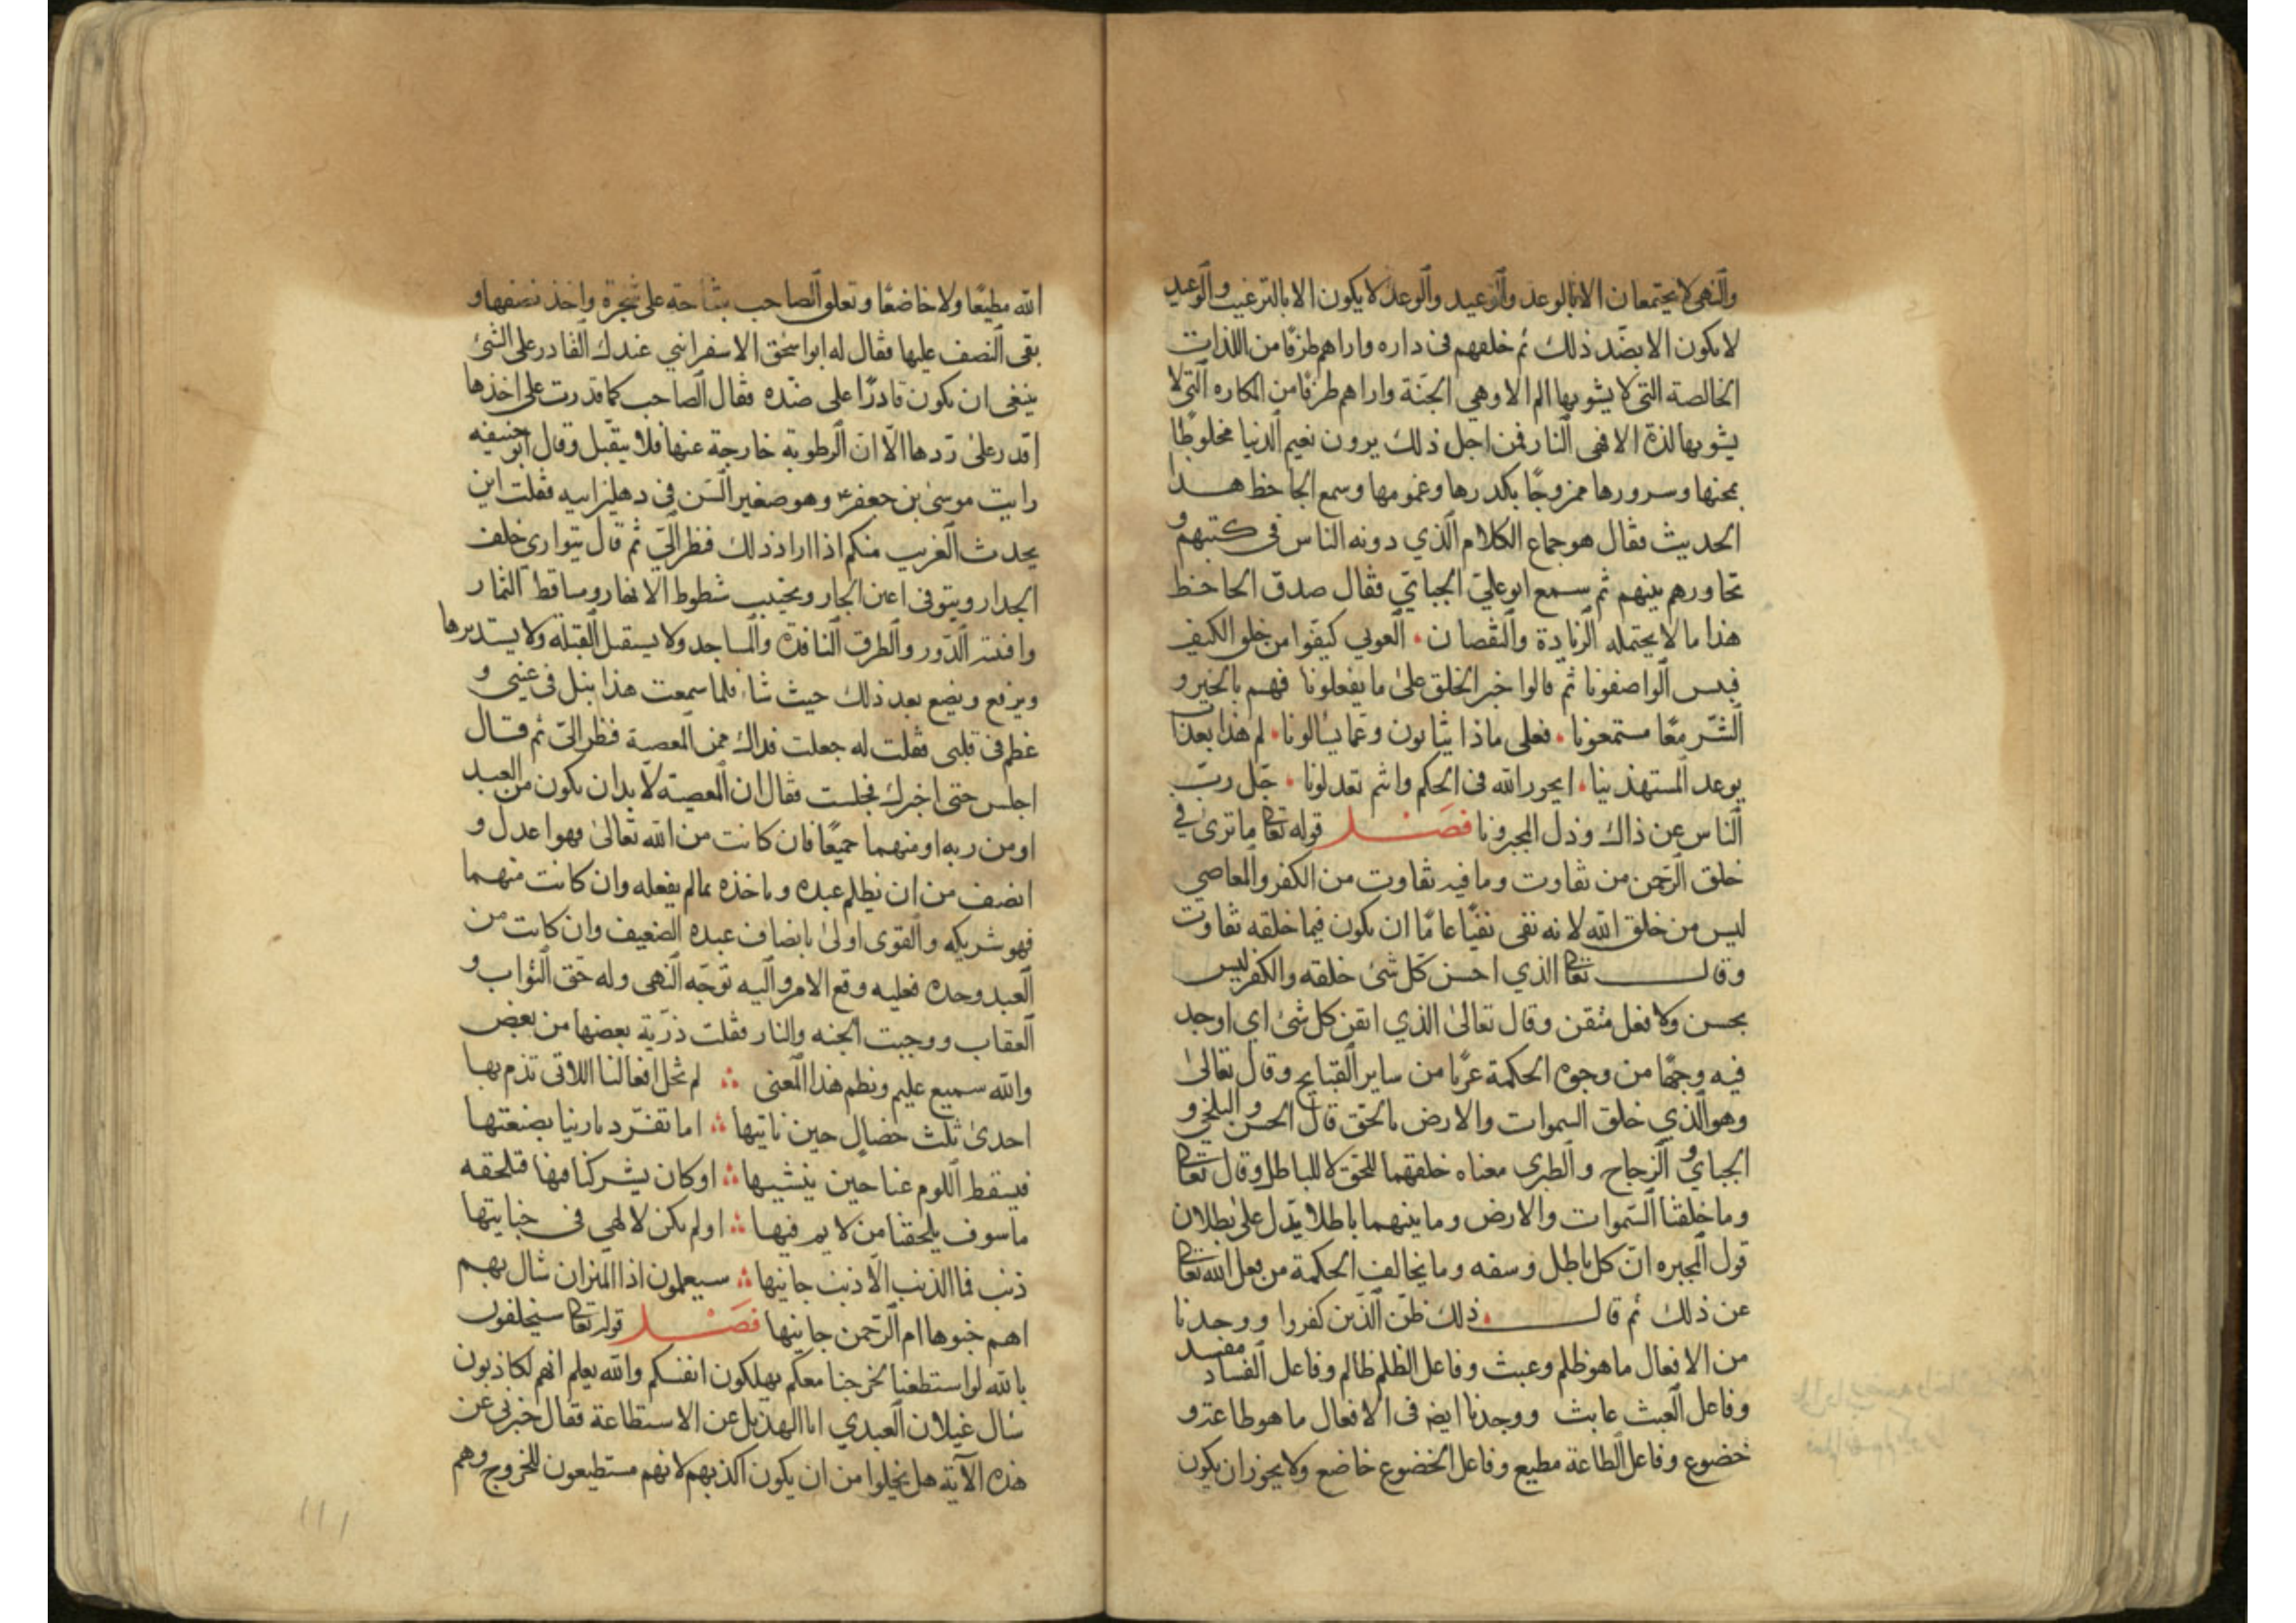 والنهى لا يجتمعان الا بالوعد والوعيد والوعد لا يكون الا بالترغيب والوعيد
لا يكون الا بضد ذلك ثم خلقهم فى داره واراهم طرفا من اللذات
الخالصة التى لا يشوبها الم الا وهي الجنة واراهم طرفا من المكاره التى لا
يشوبها لذة الا وهى النار فمن اجل ذلك يرون نعيم الدنيا مخلوطا
بمحنها وسرورها ممزوجا بكدرها وغمومها وسمع الجاحظ هذا
الحديث فقال هو جماع الكلام الذي دونه الناس فى كتبهم و
تحاورهم بينهم ثم سمع ابو علي الجبايي فقال صدق الجاحظ
هذا ما لا يحتمله الزيادة والنقصان ۰ العوني كيفوا من خلق الكيف
فبس الواصفونا ثم قالوا خبر الخلق على ما يفعلونا فهم بالخير و
الشر معا مستمعونا ۰ فعلى ماذا يثابون وعما يسالونا ۰ لم هذا بعدنا
يوعد المستهذينا ۰ ايجور الله فى الحكم وانتم تعدلونا ۰ جل رب
الناس عن ذاك وذل المجبرونا فصل قوله تعا ما ترى في
خلق الرحمن من تفاوت وما فيه تفاوت من الكفر والمعاصي
ليس من خلق الله لانه نفى نفيا عاما ان يكون فيما خلقه تفاوت
وقال تعا الذي احسن كل شئ خلقه والكفر ليس
بحسن ولا فعل متقن وقال تعالى الذي اتقن كل شئ اي اوجد
فيه وجها من وجوه الحكمة عريا من ساير القبايح وقال تعالى
وهو الذي خلق السموات والارض بالحق قال الحسن والبلخي و
الجبايي والزجاج والطبري معناه خلقهما للحق لا للباطل وقال تعا
وما خلقنا السموات والارض وما بينهما باطلا يدل على بطلان
قول المجبره ان كل باطل وسفه وما يخالف الحكمة من فعل الله تعا
عن ذلك ثم قال ۰ ذلك ظن الذين كفروا ووجدنا
من الافعال ما هو ظلم وعبث وفاعل الظلم ظالم وفاعل الفساد مفسد
وفاعل العبث عابث ووجدنا ايضه فى الافعال ما هو طاعة و
خضوع وفاعل الطاعة مطيع وفاعل الخضوع خاضع ولا يجوز ان يكون
الله مطيعا ولا خاضعا وتعلو الصاحب بتفاحة على شجرة واخذ نصفها و
بقى النصف عليها فقال له ابو اسحق الاسفرايني عندك القادر على الشئ
ينبغى ان يكون قادرا على ضده فقال الصاحب كما قدرت على اخذها
اقدر على ردها الا ان الرطوبة خارجة عنها فلا يتقبل وقال ابو حنيفه
رايت موسى بن جعفر ع وهو صغير السن فى دهليز ابيه فقلت اين
يحدث الغريب منكم اذا اراد ذلك فنظر الي ثم قال يتوارى خلف
الجدار ويتوقى اعين الجار ويجتنب شطوط الانهار ومساقط الثمار
وافنية الدور والطرق النافذة والمساجد ولا يستقبل القبلة ولا يستدبرها
ويرفع ويضع بعد ذلك حيث شاء فلما سمعت هذا نبل فى عيني و
عظم فى قلبى فقلت له جعلت فداك ممن المعصية فنظر الى ثم قال
اجلس حتى اخبرك فجلست فقال ان المعصية لا بد ان يكون من العبد
او من ربه او منهما جميعا فان كانت من الله تعالى فهو اعدل و
انصف من ان يظلم عبده وياخذه بما لم يفعله وان كانت منهما
فهو شريكه والقوى اولى بانصاف عبده الضعيف وان كانت من
العبد وحده فعليه وقع الامر واليه توجه النهى وله حق الثواب و
العقاب ووجبت الجنه والنار فقلت ذرية بعضها من بعض
والله سميع عليم ونظم هذا المعنى ؞ لم تخل افعالنا اللاتى تذم بها
احدى ثلث خصال حين ناتيها ؞ اما تفرد بارينا بصنعتها
فيسقط اللوم عنا حين ينشيها ؞ او كان يشركنا فيها فتلحقه
ما سوف يلحقنا من لايم فيها ؞ او لم يكن لالهي فى جنايتها
ذنب فما الذنب الا ذنب جانيها ؞ سيعلمون اذا الميزان شال بهم
اهم جنوها ام الرحمن جانيها فصل قوله تعا سيحلفون
بالله لو استطعنا لخرجنا معكم يهلكون انفسكم والله يعلم انهم لكاذبون
سال غيلان العبدي ابا الهذيل عن الاستطاعة فقال خبرنى عن
هذه الآية هل يخلوا من ان يكون اكذبهم لانهم مستطيعون للخروج وهم
١١١